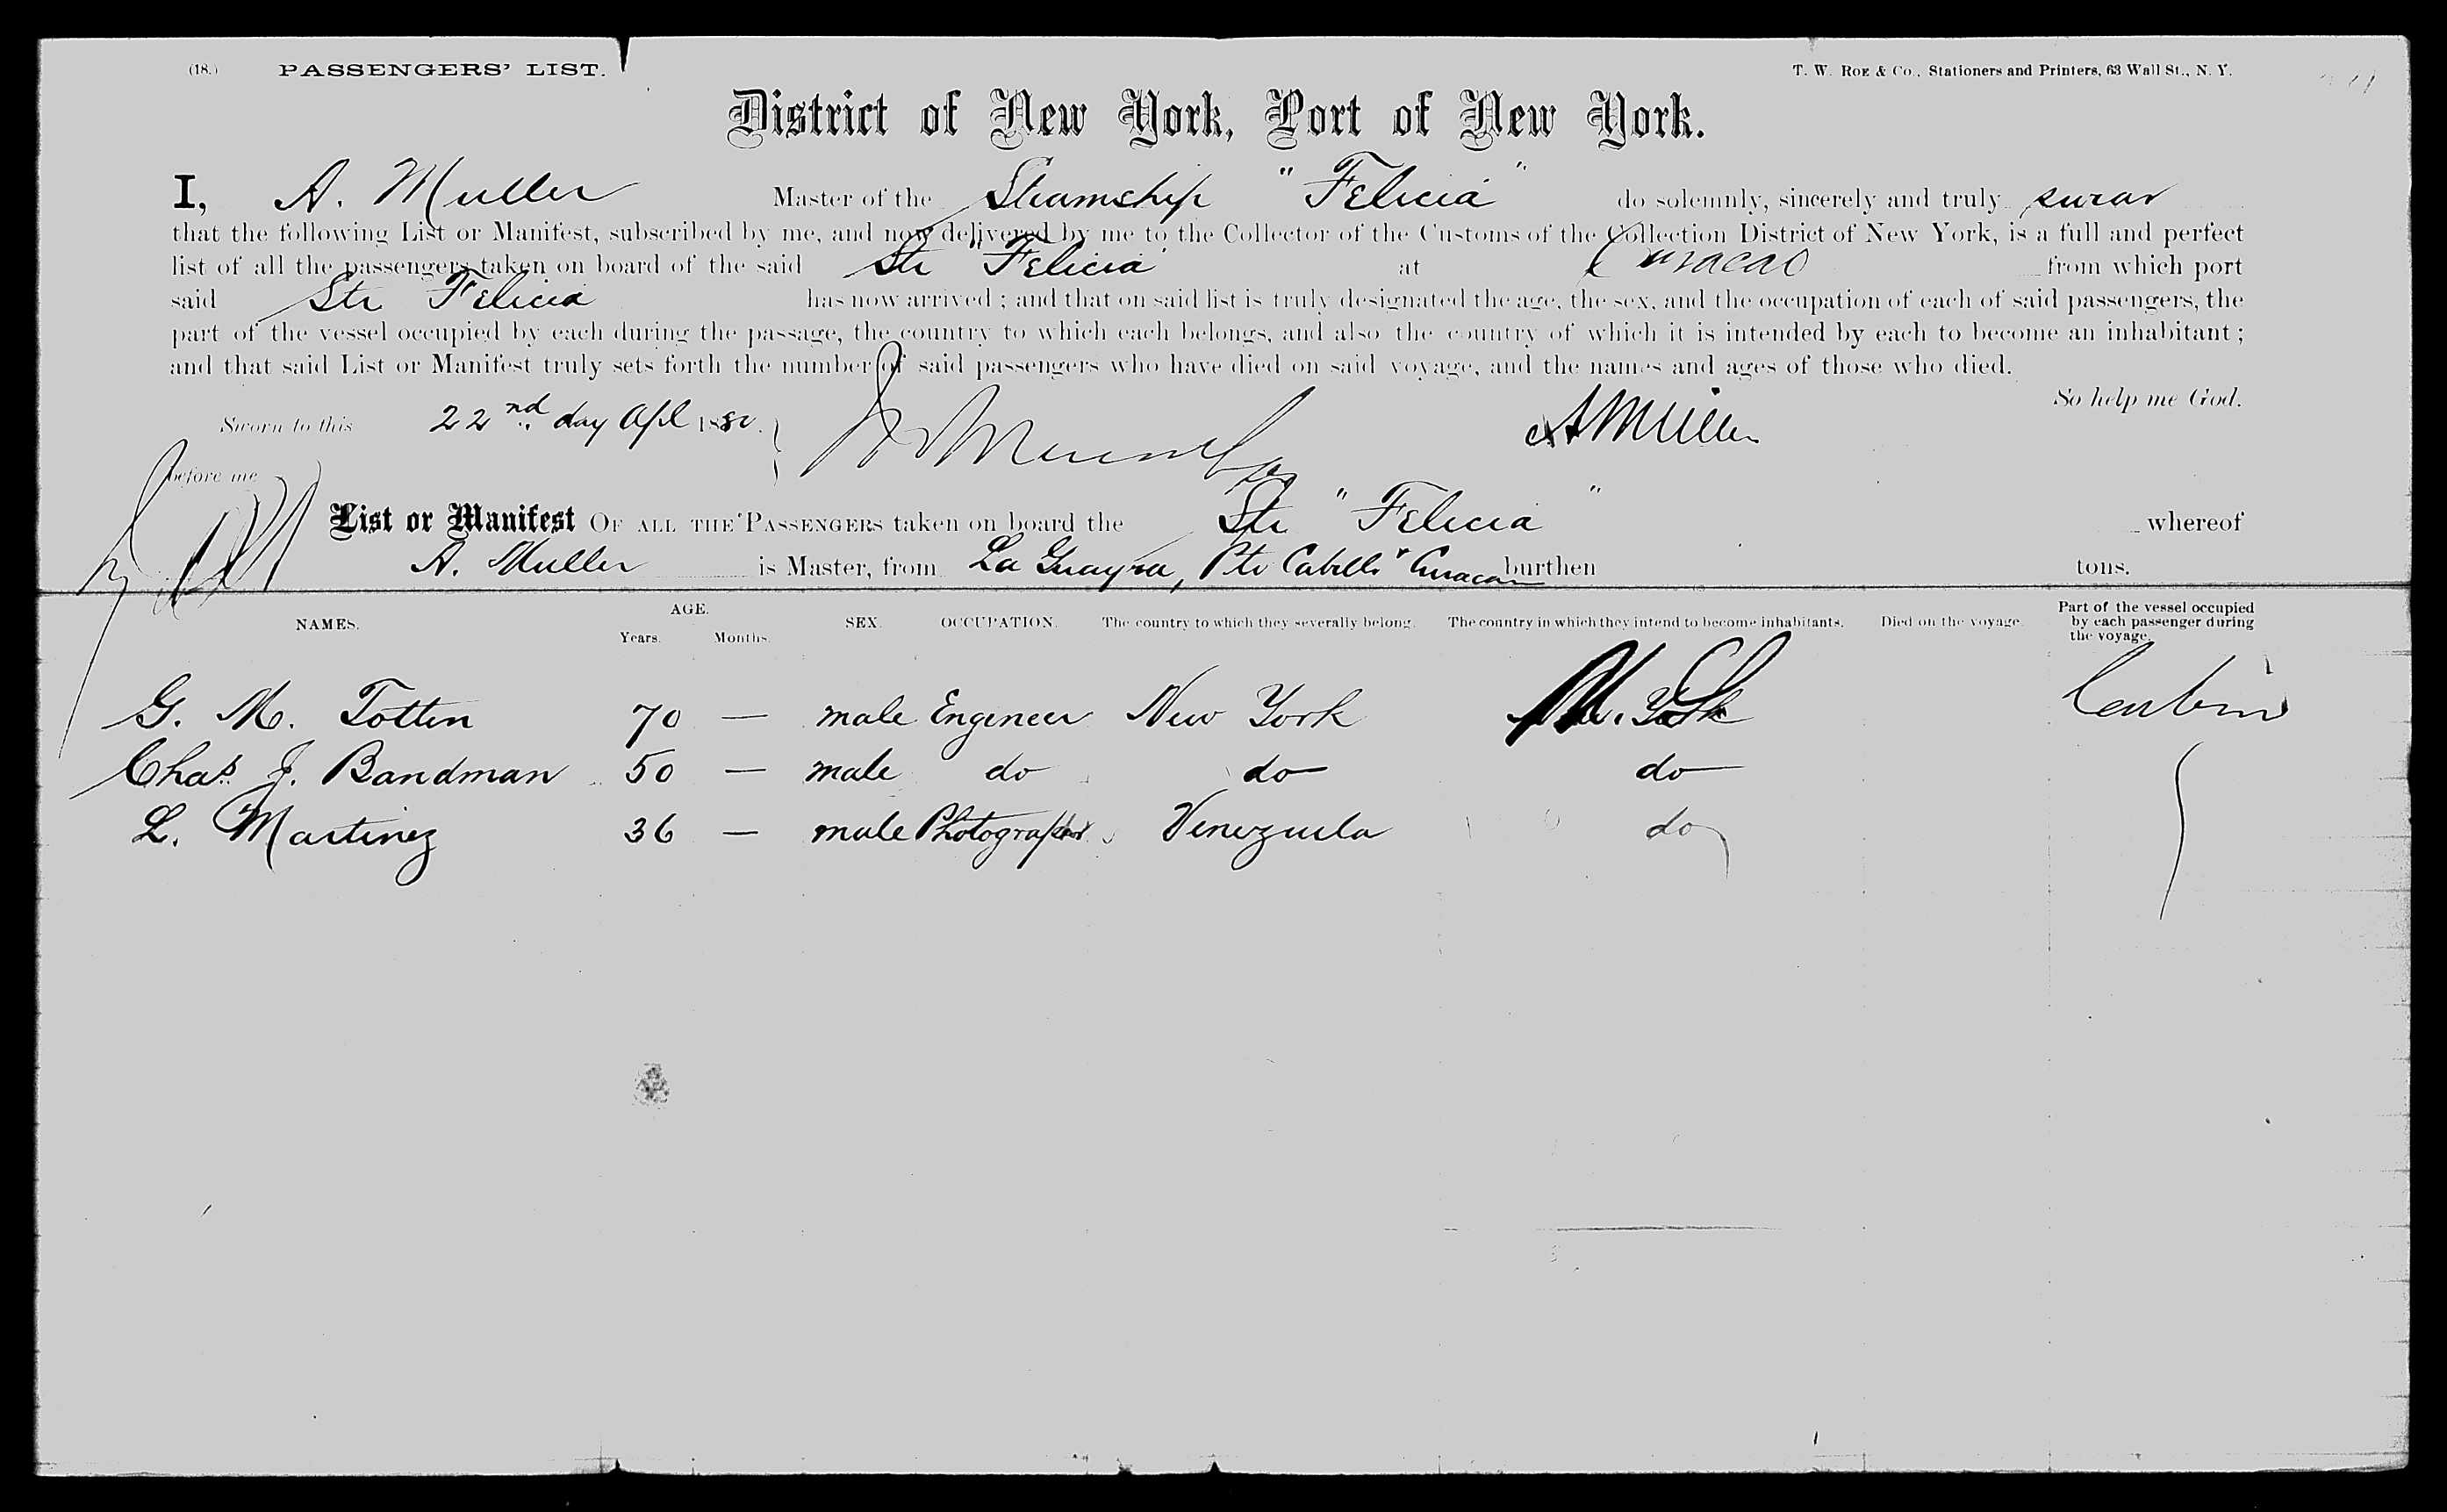 (18.) PASSENGERS' LIST. T. W. ROE & CO., Stationers and Printers, 63 Wall St., N. Y.
District of New York, Port of New York.
I, A. Muller Master of the Steamship "Felicia" do solemnly, sincerely and truly swear
that the following List or Manifest, subscribed by me, and now delivered by me to the Collector of the Customs of the Collection District of New York, is a full and perfect
list of all the passengers taken on board of the said Str "Felicia" at Curacao from which port
said Str Felicia has now arrived; and that on said list is truly designated the age, the sex, and the occupation of each of said passengers, the
part of the vessel occupied by each during the passage, the country to which each belongs, and also the country of which it is intended by each to become an inhabitant;
and that said List or Manifest truly sets forth the number of said passengers who have died on said voyage, and the names and ages of those who died.
So help me God.
Sworn to this 22nd day Apl 1880. A Muller
before me
List or Manifest OF ALL THE PASSENGERS taken on board the Str "Felicia" whereof
A. Muller is Master, from La Guayra, Pto Cabello & Curacao burthen tons.
NAMES. AGE. Years. Months. SEX. OCCUPATION. The country to which they severally belong. The country in which they intend to become inhabitants. Died on the voyage. Part of the vessel occupied by each passenger during the voyage.
G. M. Totten 70 — male Engineer New York N. York Cabin
Chas. J. Bandman 50 — male do do do
L. Martinez 36 — male Photographer Venezuela do